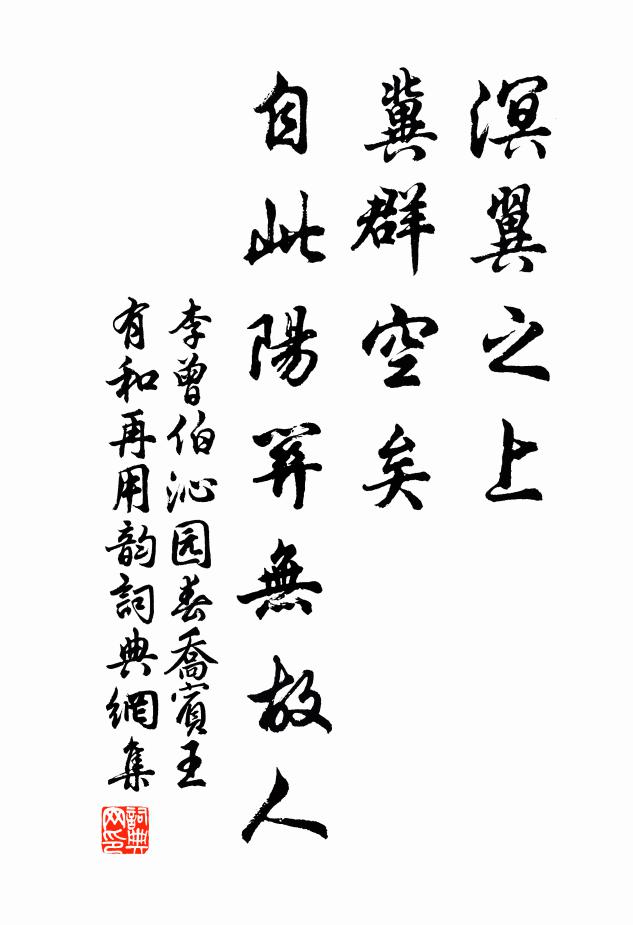 溟翼之上
冀群空矣
自此陽關無故人
李曾伯沁园春喬賓王
有和再用韵詞典網集
詞典
网印